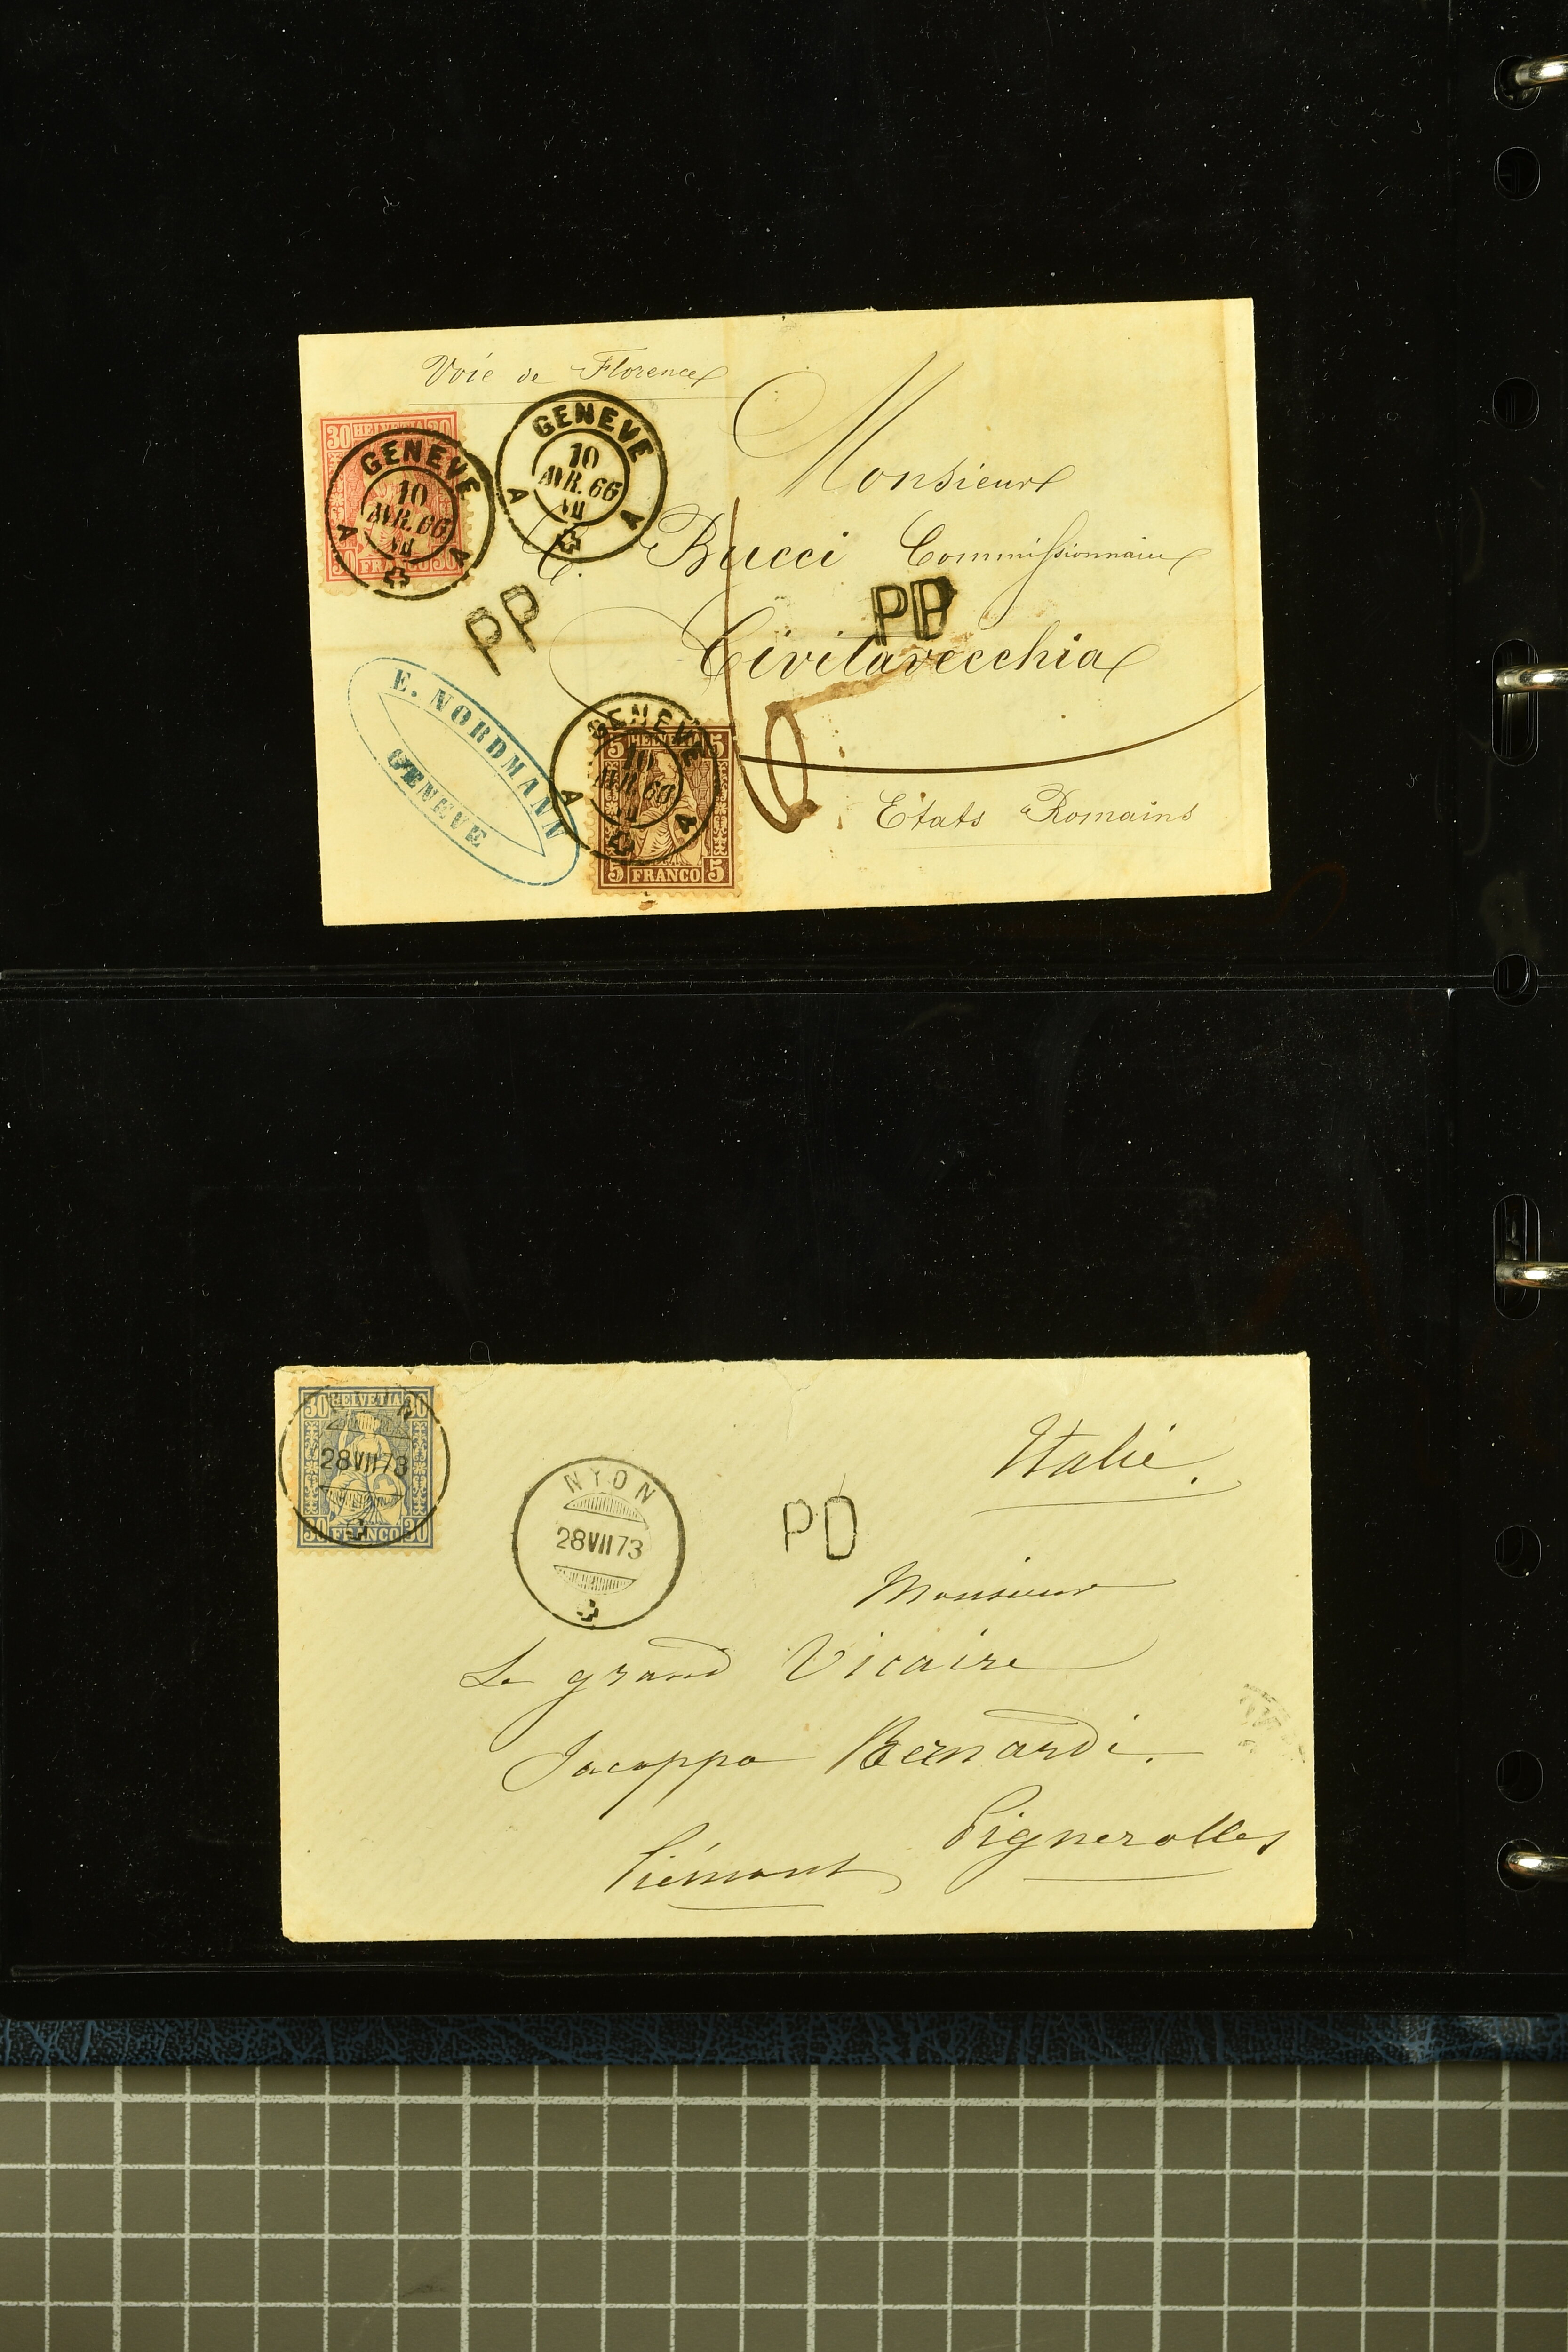 Voie de Florence
30 HELVETIA 30
GENEVE
10
AVR. 66
VII
A A
30 FRANCO 30
GENEVE
10
AVR. 66
VII
A A
Monsieur
C. Bucci Commissionnaire
PP
PD
Civitavecchia
E. NORDMANN
GENEVE
GENEVE
10
AVR. 66
VII
A A
5 HELVETIA 5
5 FRANCO 5
Etats Romains
30 HELVETIA 30
28 VII 73
30 FRANCO 30
NYON
28 VII 73
PD
Italie.
Monsieur
Le grand Vicaire
Jacoppo Bernardi.
Pignerolles
Piémont